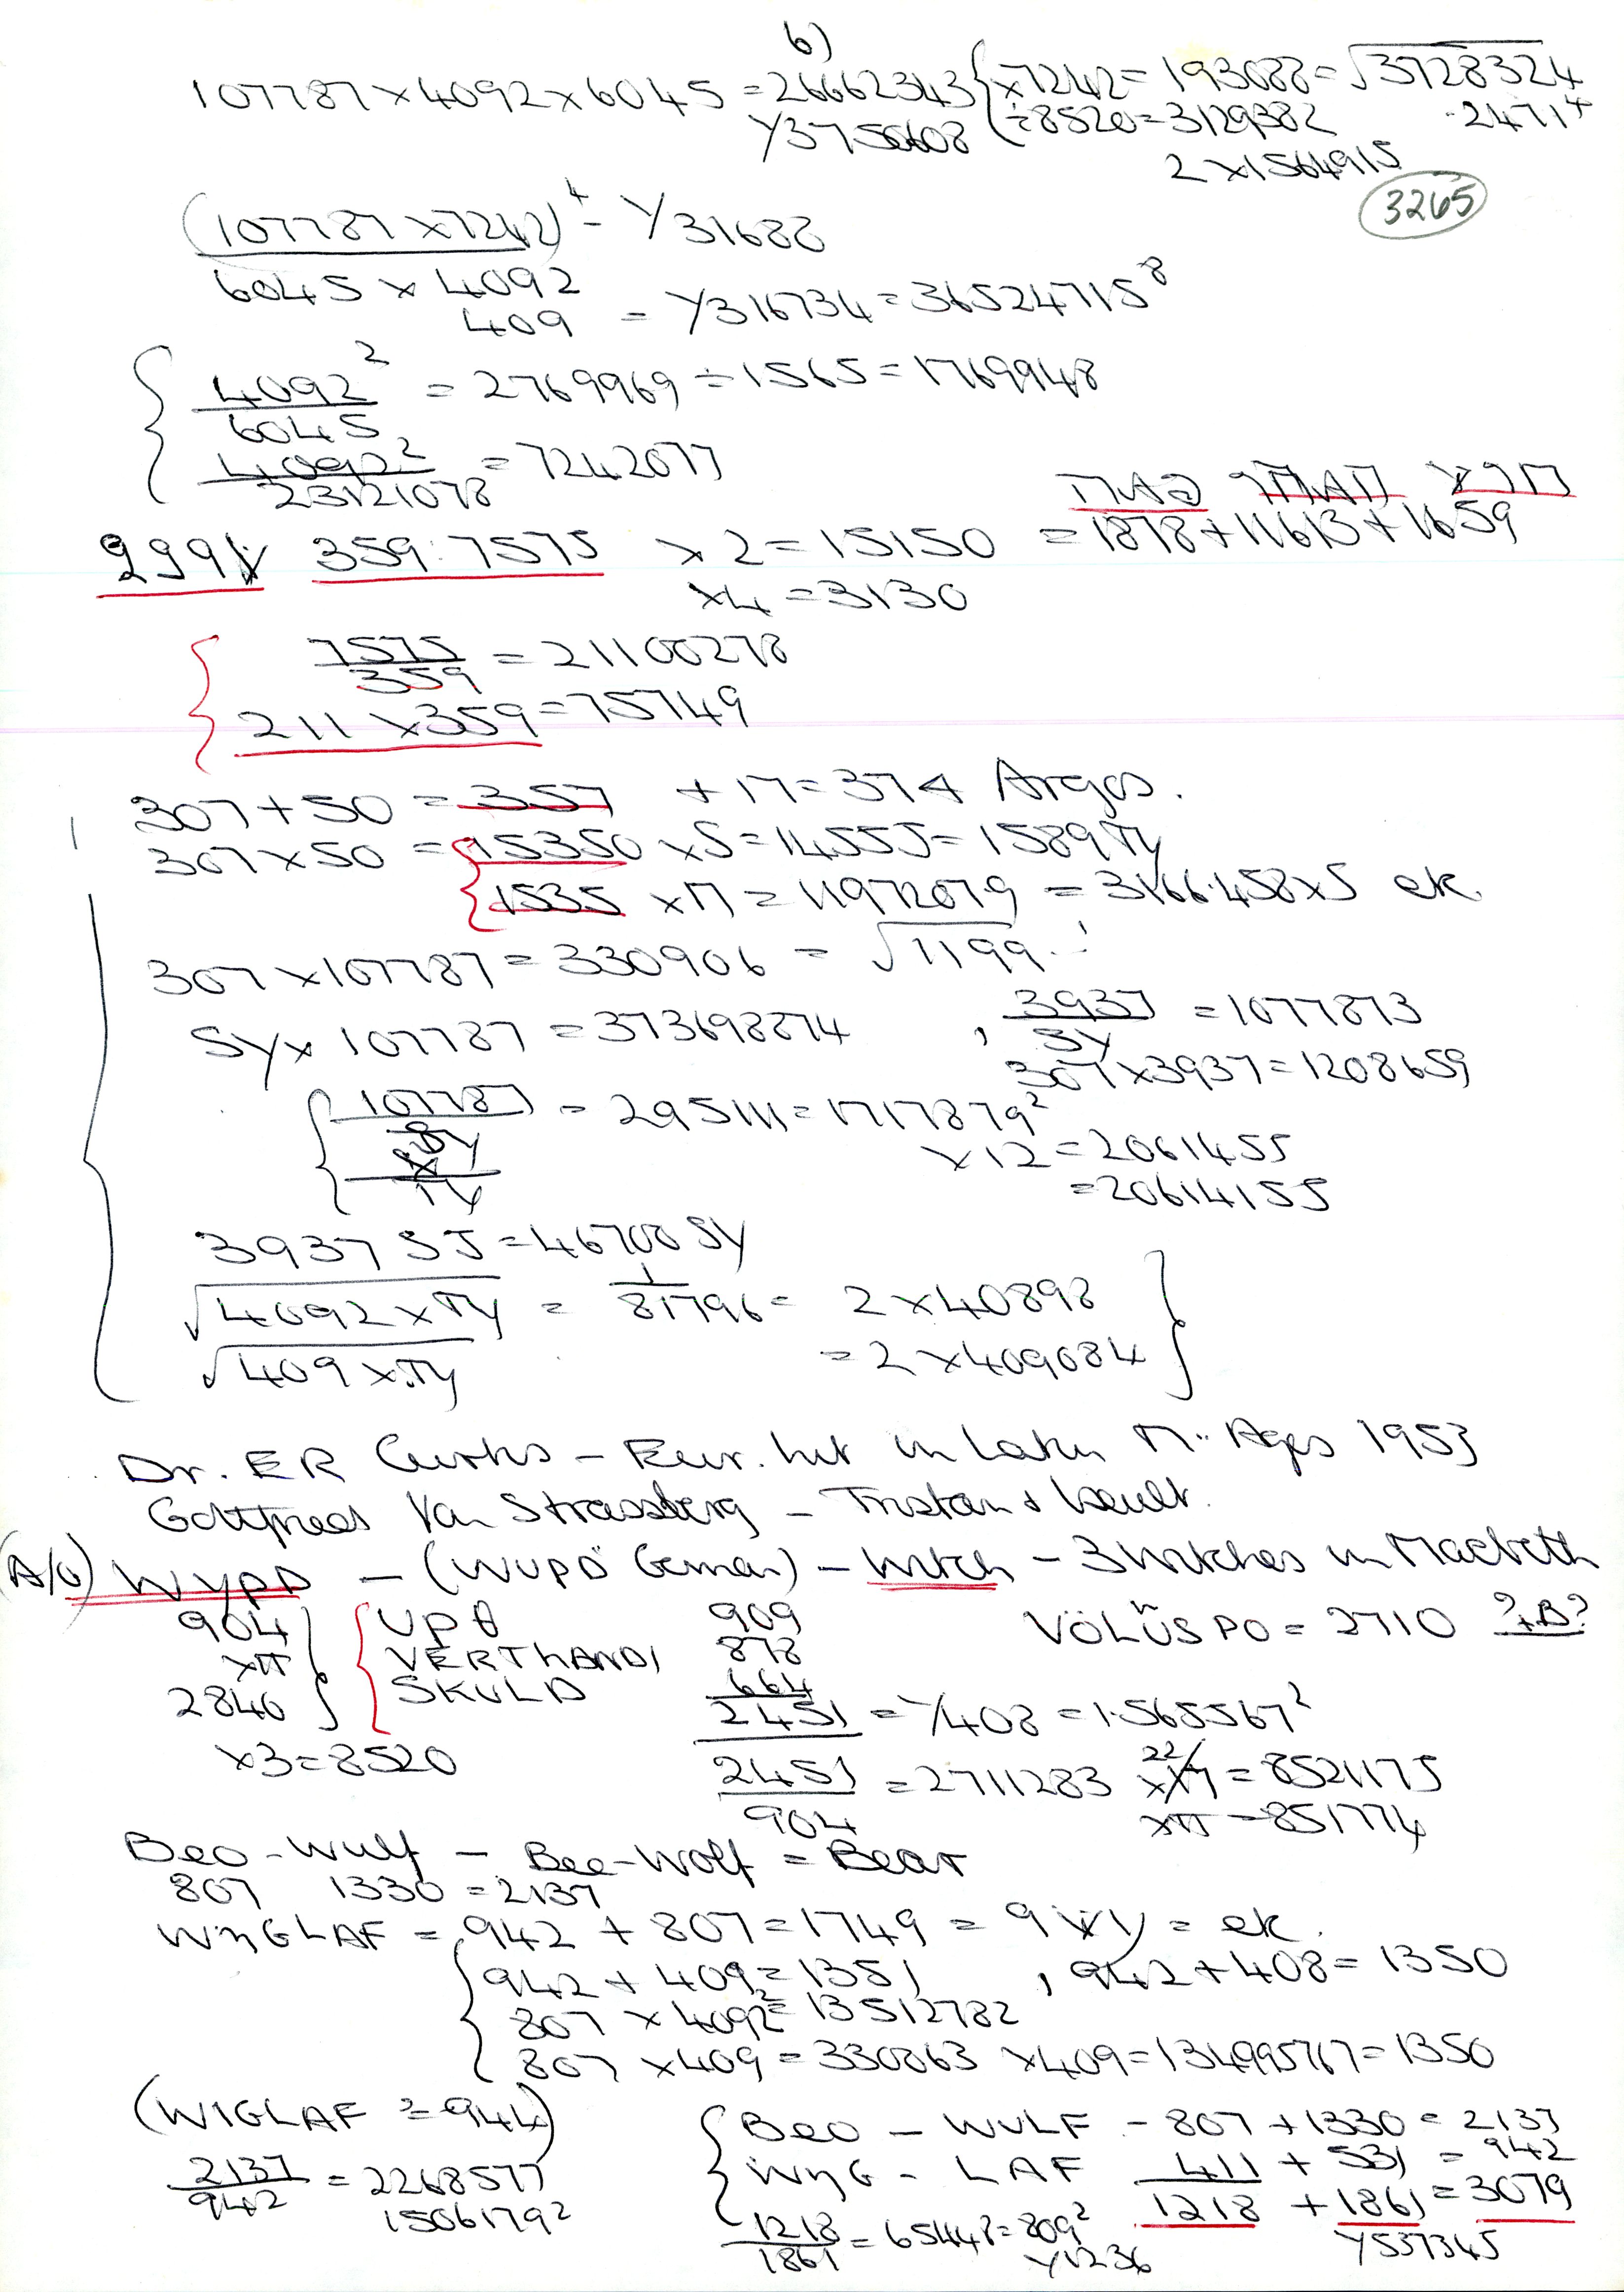 6)
107787 × 4092 × 6045 = 26662343 { × 7242 = 193088 = √3728324
Y3750608 ÷ 8520 = 3129382 .24714
2 × 1564915
3265
(107787 × 7242)⁴ = Y31688
6045 × 4092
409 = Y316734 = 36524715⁸
4092² = 2769969 ÷ 1565 = 1769948
6045
4092² = 7242077
23121078
359:7575 × 2 = 15150 = 1878 + 11613 + 1659
× 4 = 3130
7575 = 21100278
359
211 × 359 = 75749
307 + 50 = 357 + 17 = 374 Argos.
307 × 50 = 15350 × S = 14555 = 1589πy
1535 × π = 11972079 = 3166.458 × S ek.
307 × 107787 = 330906 = √1199..
SY × 107787 = 373698874 , 3937 = 1077873
SY
307 × 3937 = 1208659
107787 = 295111 = 1717879²
SY
πy
× 12 = 2061455
= 20614155
3937 SJ = 46708 SY
√4092 × πy = 1 = 2 × 40898
81796
√409 × πy = 2 × 409084
Dr. ER Curtis – Eur. lit in Latin M. Ages 1953
Gottfried Von Strassberg – Tristan & Iseult.
(A/G) WYPD – (WUPD German) – Witch – 3 Witches in Macbeth
904 UPθ 909 VÖLÜSPO = 2710 ?+B?
×π VERTHANDI 878
2840 SKULD 664
2451 = Y408 = 1.565567²
×3 = 8520
2451 = 2711283 × 22/7 = 8521175
904 ×π = 851774
Beo-Wulf – Bee-Wolf = Bear
807 1330 = 2137
WηGLAF = 942 + 807 = 1749 = = ek.
942 + 409 = 1351 , 942 + 408 = 1350
807 × 4092² = 13512782
807 × 409 = 330063 × 409 = 134995767 = 1350
(WIGLAF = 944)
2137 = 2268577
942 15061792
BEO – WULF – 807 + 1330 = 2137
WηG – LAF 411 + 531 = 942
1218 + 1861 = 3079
1218 = 65448 = 809² Y537345
1861 Y1236